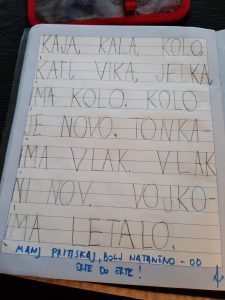 KAJA, KALA, KOLO,
KATI, VIKA, JELKA
IMA KOLO. KOLO
JE NOVO. TONKA-
IMA VLAK. VLAK
NI NOV. VOJKO-
MA LETALO.
MANJ PRITISKAJ, BOLJ NATANČNO - OD
ČRTE DO ČRTE!